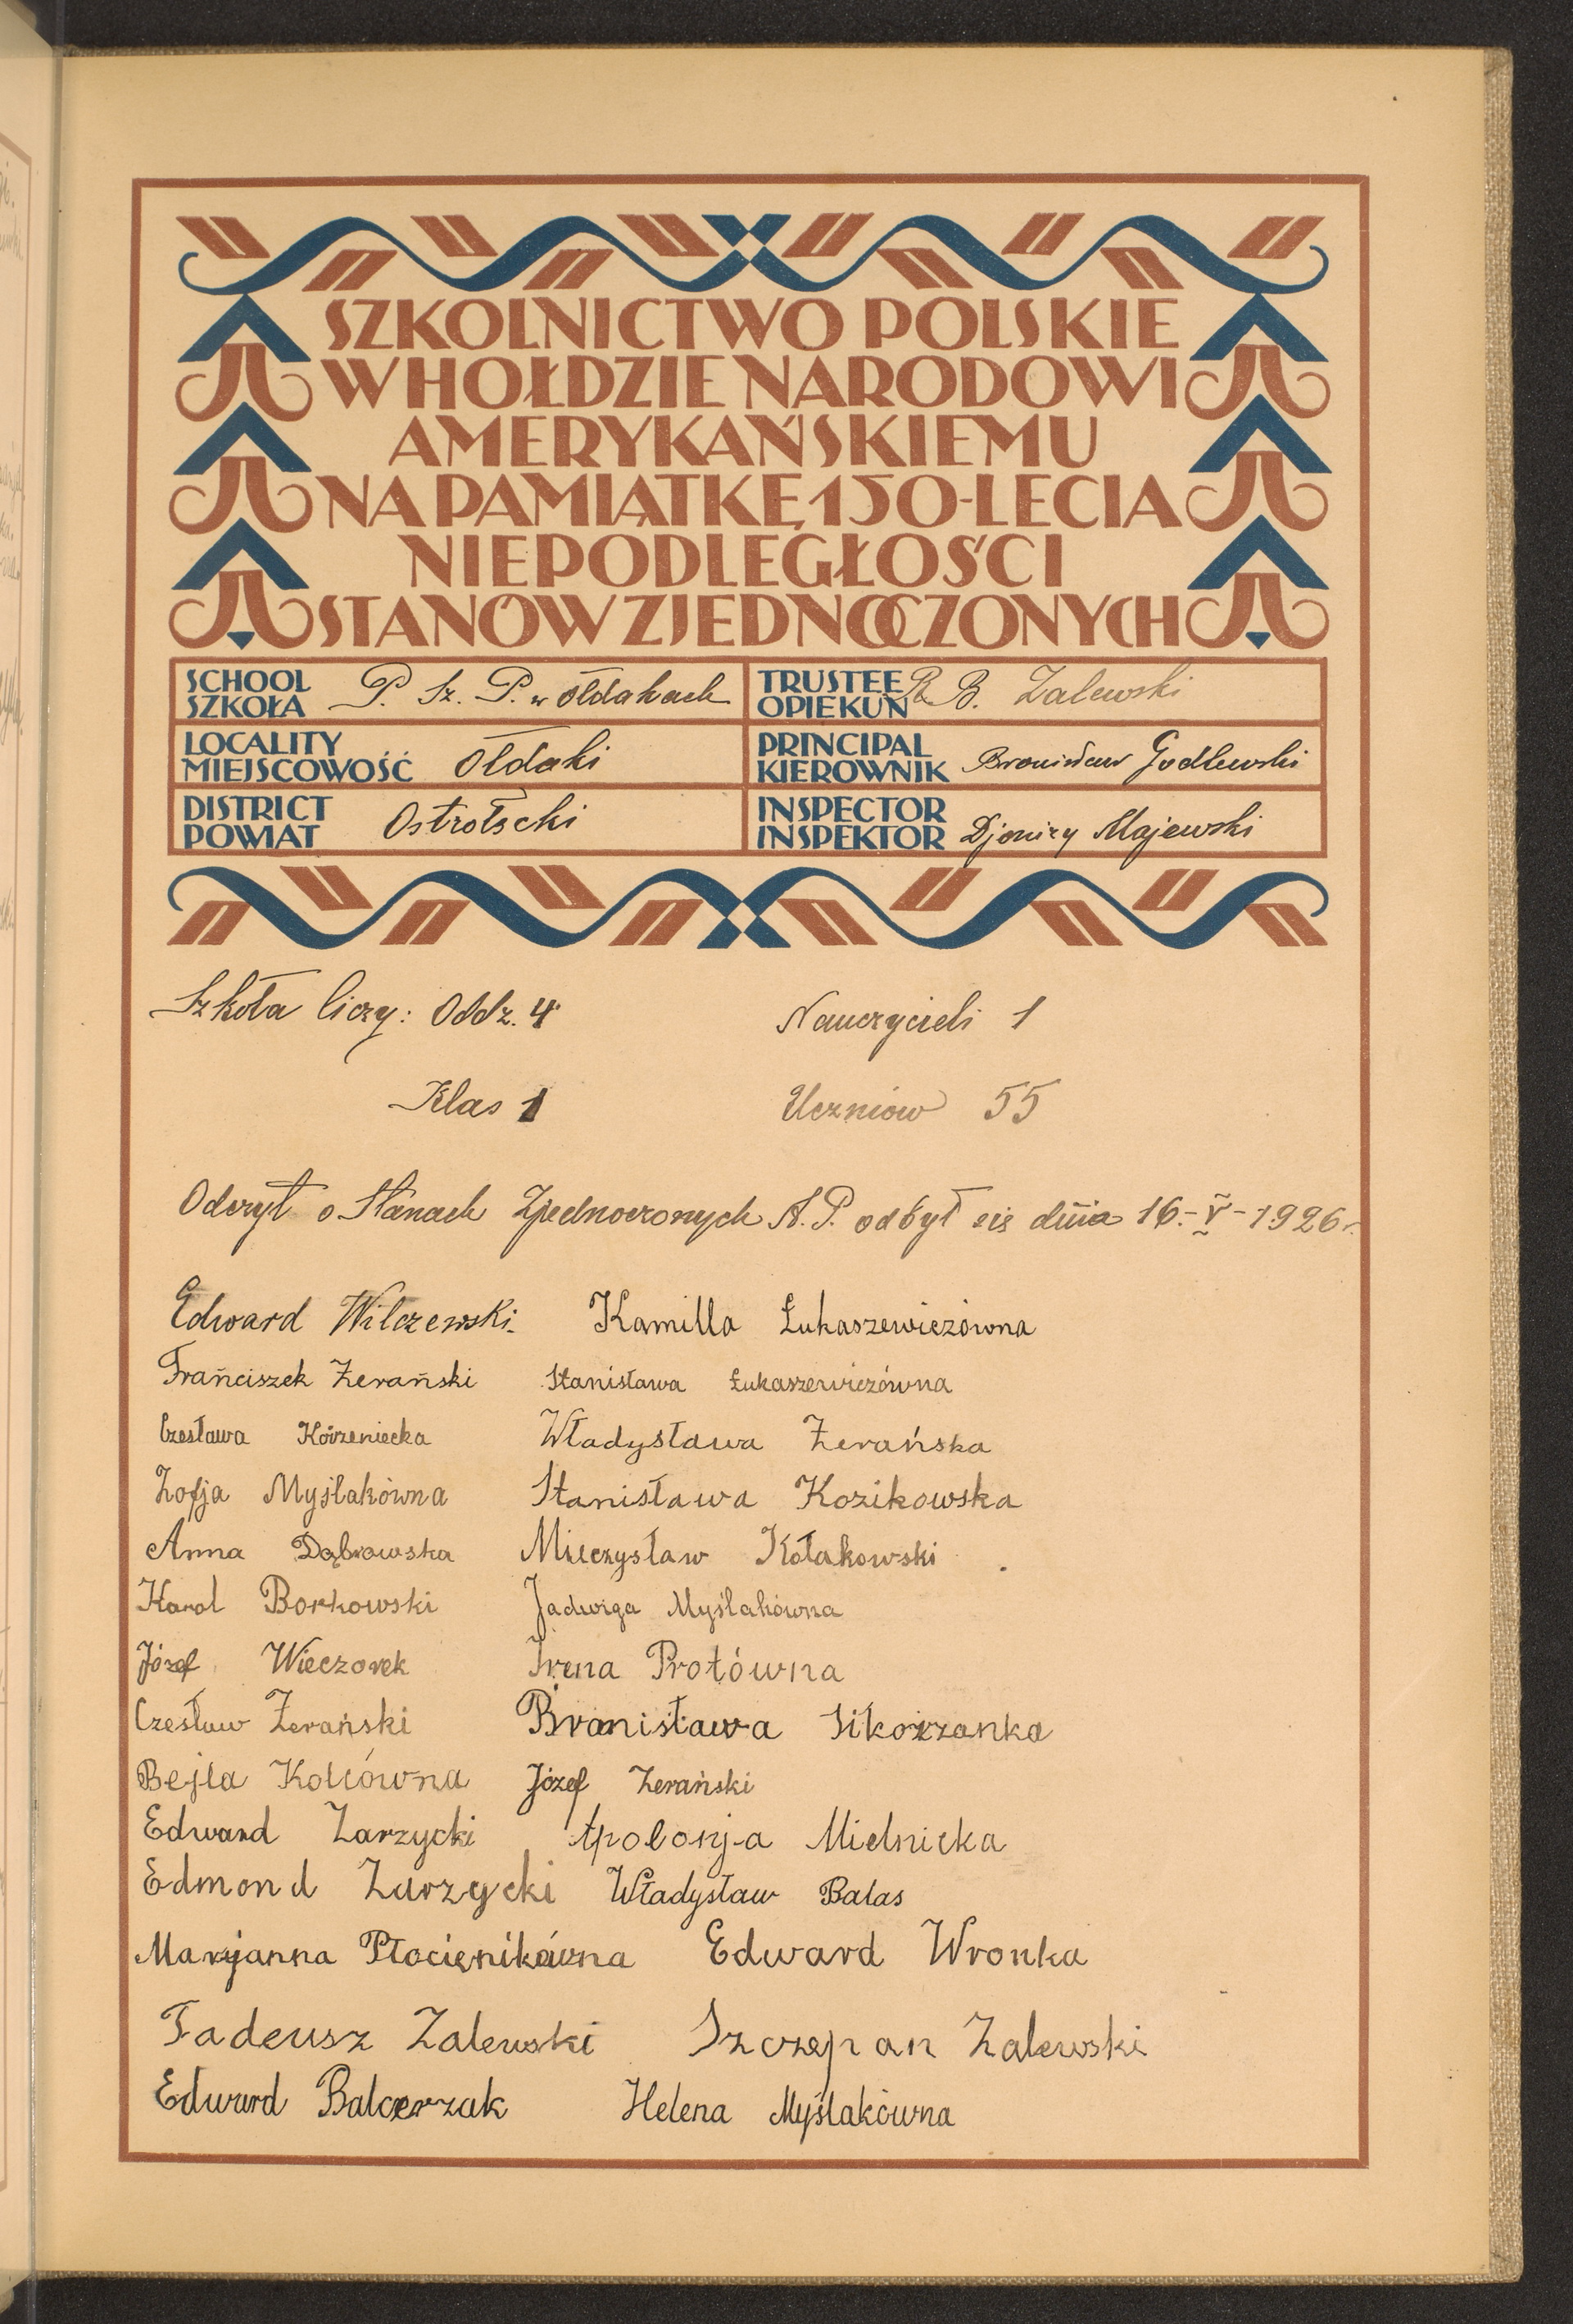 SZKOLNICTWO POLSKIE
W HOŁDZIE NARODOWI
AMERYKAŃSKIEMU
NA PAMIĄTKĘ 150-LECIA
NIEPODLEGŁOŚCI
STANÓW ZJEDNOCZONYCH
SCHOOL
SZKOŁA P. Sz. P. w Ołdakach
TRUSTEE
OPIEKUN B. Zalewski
LOCALITY
MIEJSCOWOŚĆ Ołdaki
PRINCIPAL
KIEROWNIK Bronisław Godlewski
DISTRICT
POWIAT Ostrołęcki
INSPECTOR
INSPEKTOR Djonizy Majewski
Szkoła liczy: Oddz. 4 Nauczycieli 1
Klas 1 Uczniów 55
Odczyt o Stanach Zjednoczonych A. P. odbył się dnia 16.-V-1926 r.
Edward Wilczewski. Kamilla Łukaszewiczówna
Frańciszek Żerański Stanisława Łukaszewiczówna
Czesława Kórzeniecka Władysława Żerańska
Zofja Myślakówna Stanisława Kozikowska
Anna Dąbrowska Mieczysław Kołakowski
Karol Borkowski Jadwiga Myślakówna
Józef Wieczorek Irena Protówna
Czesław Żerański Bronisława Sikorzanka
Bejla Kolcówna Józef Żerański
Edward Zarzycki Apolonja Mielnicka
Edmond Zarzycki Władysław Balas
Maryjanna Płocienikówna Edward Wronka
Tadeusz Zalewski Szczepan Zalewski
Edward Balcerzak Helena Myślakówna